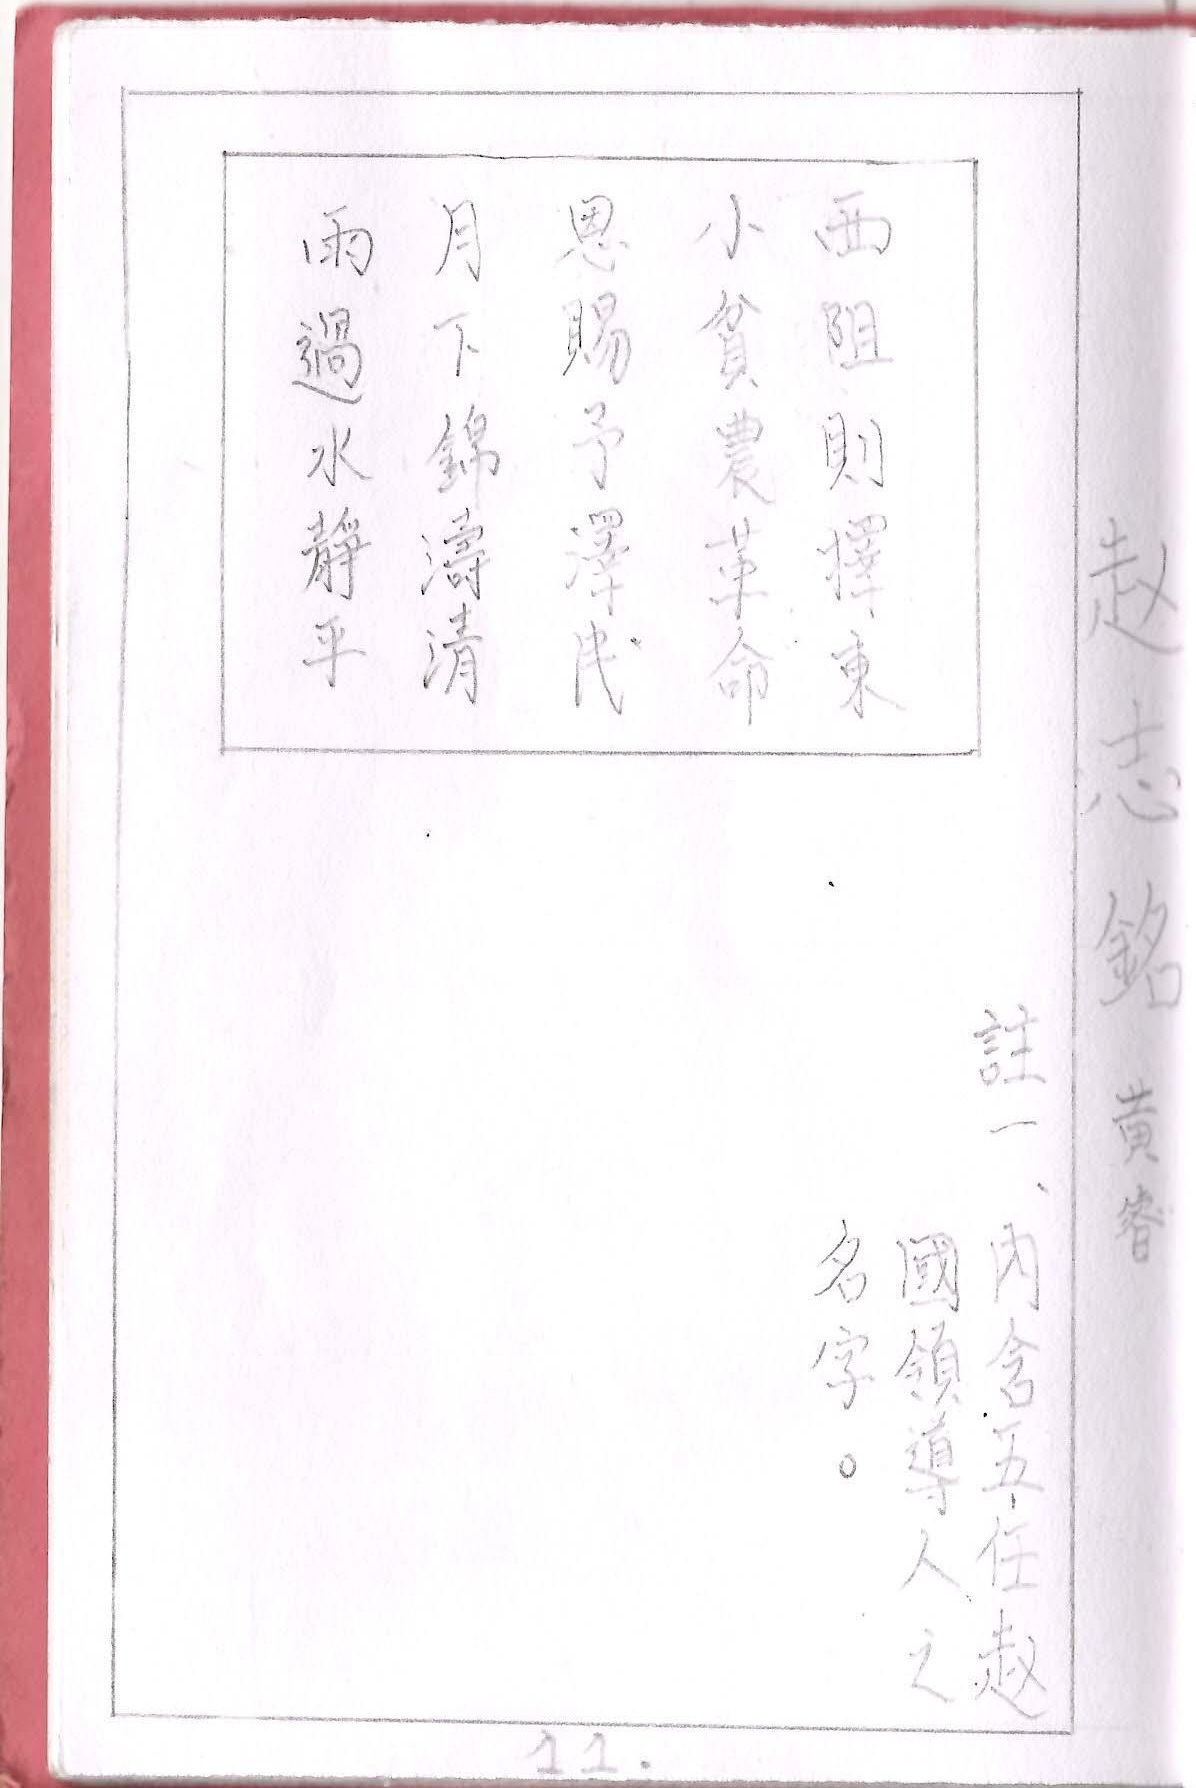 赵志銘 黄睿
西阻則擇東
小貧農革命
恩賜予澤民
月下錦濤清
雨過水靜平
註一、內含五任赵
國領導人之
名字。
11.